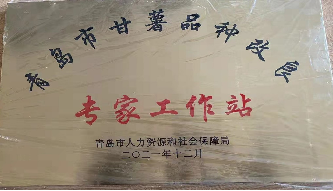 青岛市甘薯品种改良
专家工作站
青岛市人力资源和社会保障局
二〇二一年十二月